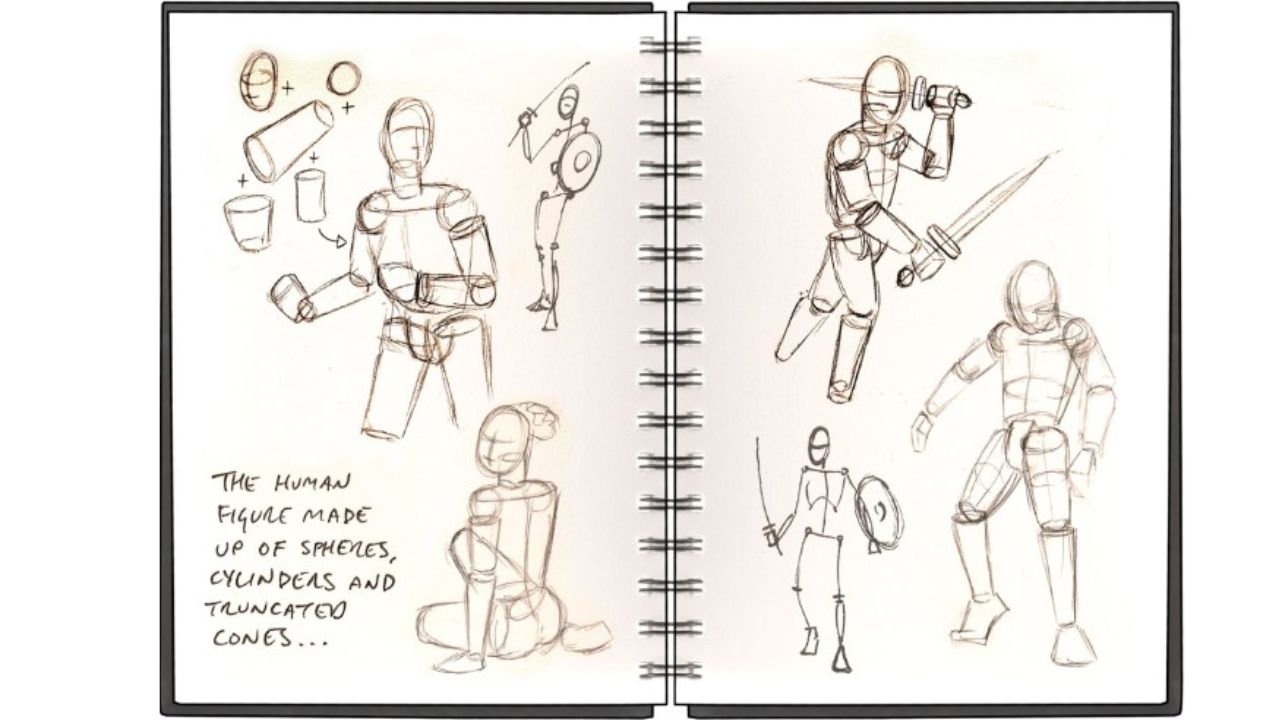 THE HUMAN
FIGURE MADE
UP OF SPHERES,
CYLINDERS AND
TRUNCATED
CONES...